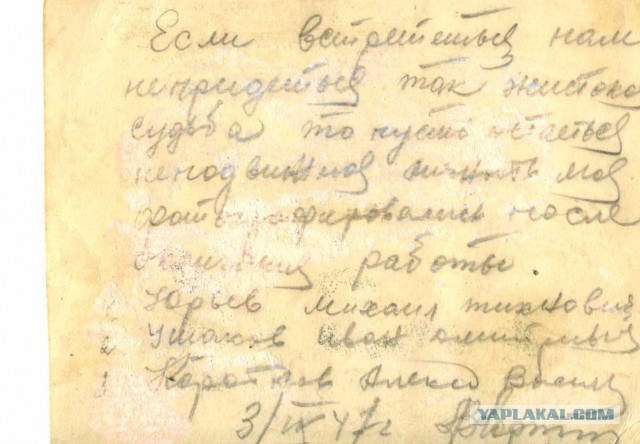 Если встрететься нам
непридеться так жистока
судьба то пусть остаеться
неподвижная личность моя
фотографировались после
окончания работы
1 Юрьев Михаил Тихнович
2 Ушаков Иван Дмитрмый
3 Коротков Алекс Васил
3/IV 47г
YAPLAKAL.COM